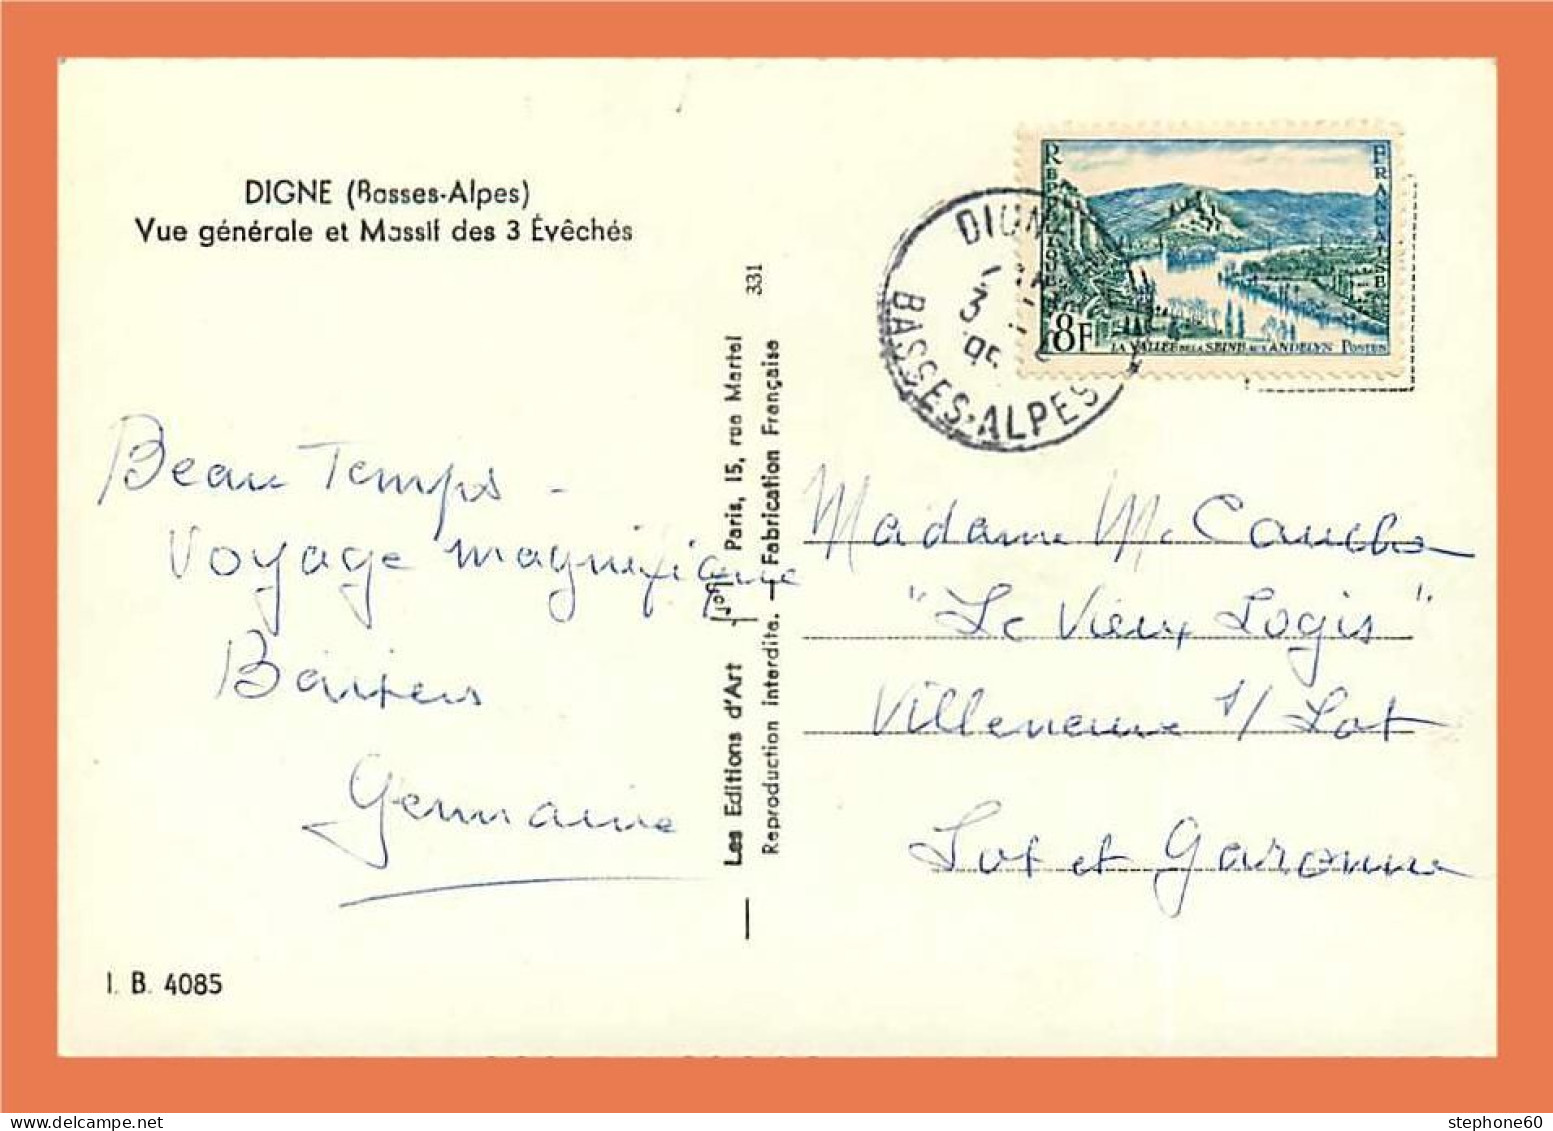 DIGNE (Basses-Alpes)
Vue générale et Massif des 3 Évêchés
Beau Temps -
Voyage magnifique
Baisers
Germaine
I. B. 4085
Les Editions d'Art Paris, 15, rue Martel
Reproduction interdite. — Fabrication Française
331
RÉPUBLIQUE
FRANÇAISE
8F
LA VALLÉE DE LA SEINE AUX ANDELYS POSTES
DIGNE
3
BASSES-ALPES
Madame Mc
" Le Vieux Logis "
Villeneuve s/ Lot
Lot et Garonne
stephone60